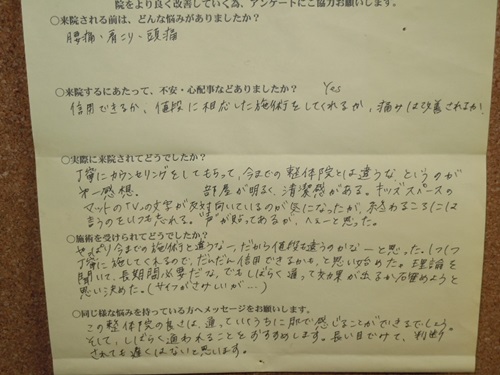 院をより良く改善していく為、アンケートにご協力お願いします。
○来院される前は、どんな悩みがありましたか?
腰痛・肩こり・頭痛
○来院するにあたって、不安・心配事などありましたか? Yes
信用できるか、値段に相応した施術をしてくれるか、痛みは改善されるか
○実際に来院されてどうでしたか?
丁寧にカウンセリングをしてもらって、今までの整体院とは違うな というのが
第一感想。 部屋が明るく、清潔感がある。キッズスペースの
マットのTVの文字が反対向いているのが気になったが、終わるころには
言うのをいつも忘れる。"声"が貼ってあるが、へぇーと思った。
○施術を受けられてどうでしたか?
やっぱり今までの施術と違うなー、だから値段も違うのかなーと思った。(
丁寧に施してくれるので、だんだん信用できるかも、と思い始めた。理論を
聞いて、長期間必要だな、でもしばらく通って効果が出るか確かめようと
思い決めた。(サイフがさみしいが…)
○同じ様な悩みを持っている方へメッセージをお願いします。
この整体院の良さは、通っていくうちに肌で感じることができるでしょう。
そして、しばらく通われることをおすすめします。長い目でみて、判断
されても遅くはないと思います。